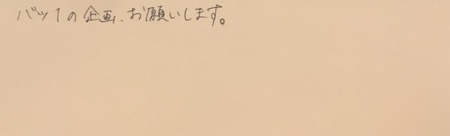 バツ1の企画、お願いします。